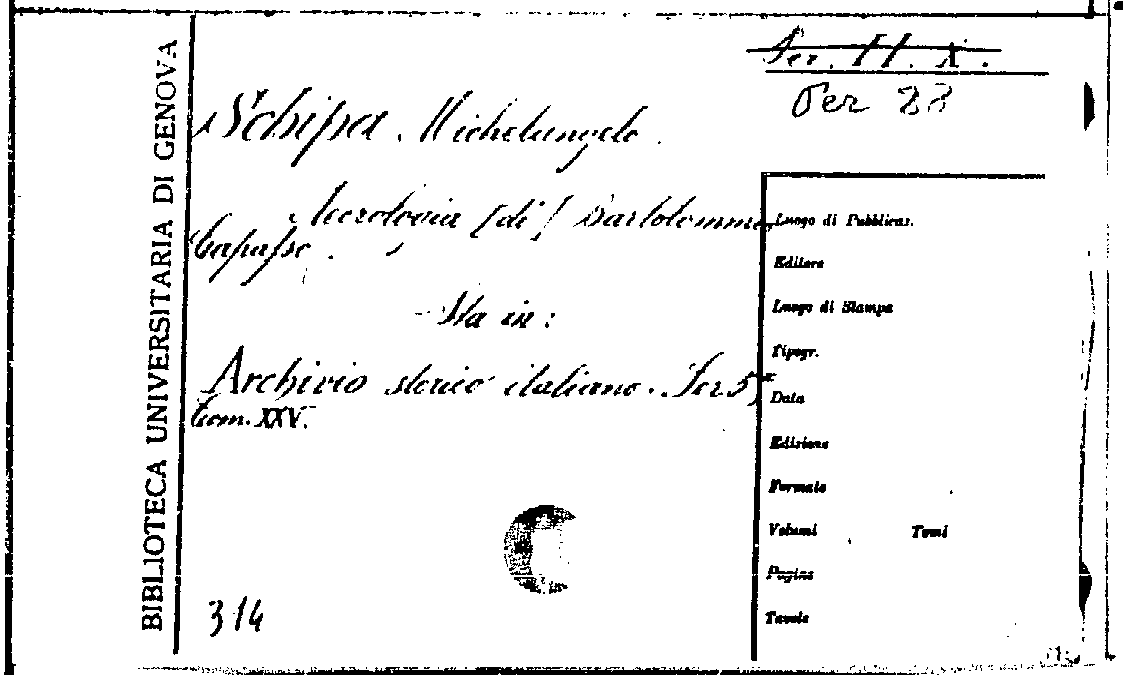 BIBLIOTECA UNIVERSITARIA DI GENOVA
Ser. II. X.
Per 28
Schipa Michelangelo.
Necrologia [di] Bartolommeo
Capasso.
Sta in:
Archivio storico italiano. Ser 5ª
Tom. XXV.
314
Luogo di Pubblicaz.
Editore
Luogo di Stampa
Tipogr.
Data
Edizione
Formato
Volumi Tomi
Pagine
Tavole